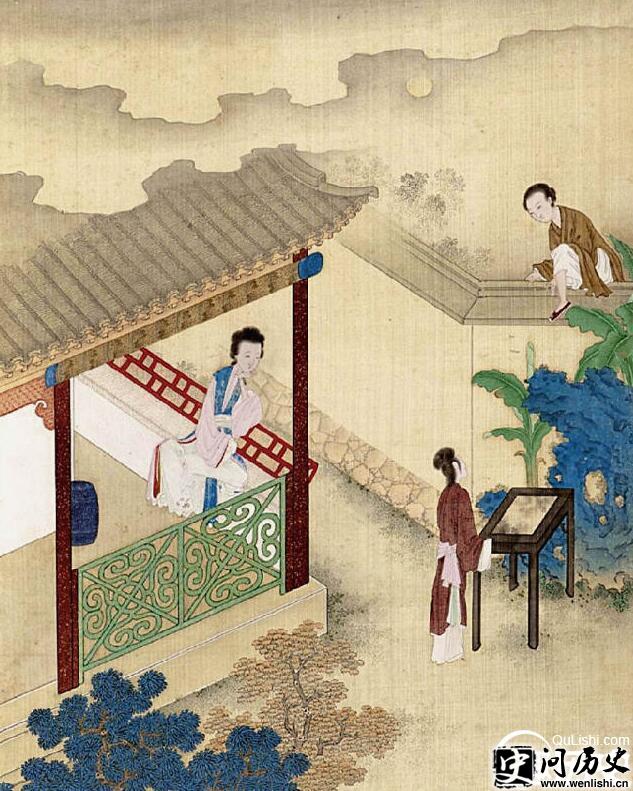 QuLishi.com
史问历史
www.wenlishi.cn